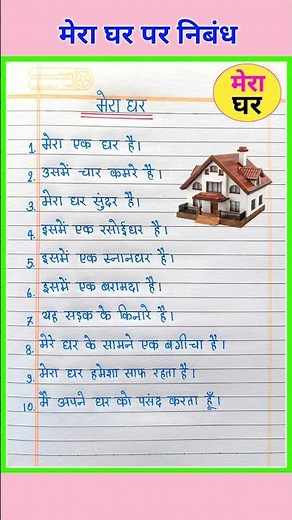 मेरा घर पर निबंध
मेरा
घर
मेरा घर
1. मेरा एक घर है।
2. उसमें चार कमरे है।
3. मेरा घर सुंदर है।
4. इसमें एक रसोईघर है।
5. इसमें एक स्नानघर है।
6. इसमें एक बरामदा है।
7. यह सड़क के किनारे है।
8. मेरे घर के सामने एक बगीचा है।
9. मेरा घर हमेशा साफ रहता है।
10. मै अपने घर को पसंद करता हूँ।